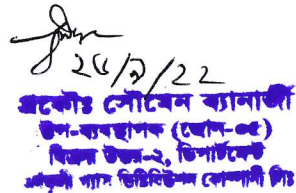 ২৫/৯/২২
প্রকৌঃ সৌমেন ব্যানার্জী
উপ-ব্যবস্থাপক (জোন-০৫)
বিক্রয় উত্তর-২, ডিপার্টমেন্ট
গ্যাস ডিস্ট্রিবিউশন কোম্পানী লিঃ